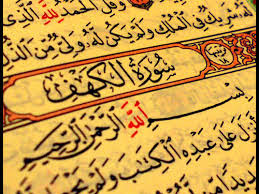 وَقُلِ الْحَمْدُ لِلَّهِ الَّذِي
لَهُ شَرِيكٌ فِي الْمُلْكِ وَلَمْ يَكُنْ لَهُ وَلِيٌّ مِنَ الذُّلِّ
سُورَةُ الْكَهْفِ
بِسْمِ اللَّهِ الرَّحْمَٰنِ الرَّحِيمِ
أَنْزَلَ عَلَىٰ عَبْدِهِ الْكِتَٰبَ وَلَمْ يَجْعَلْ